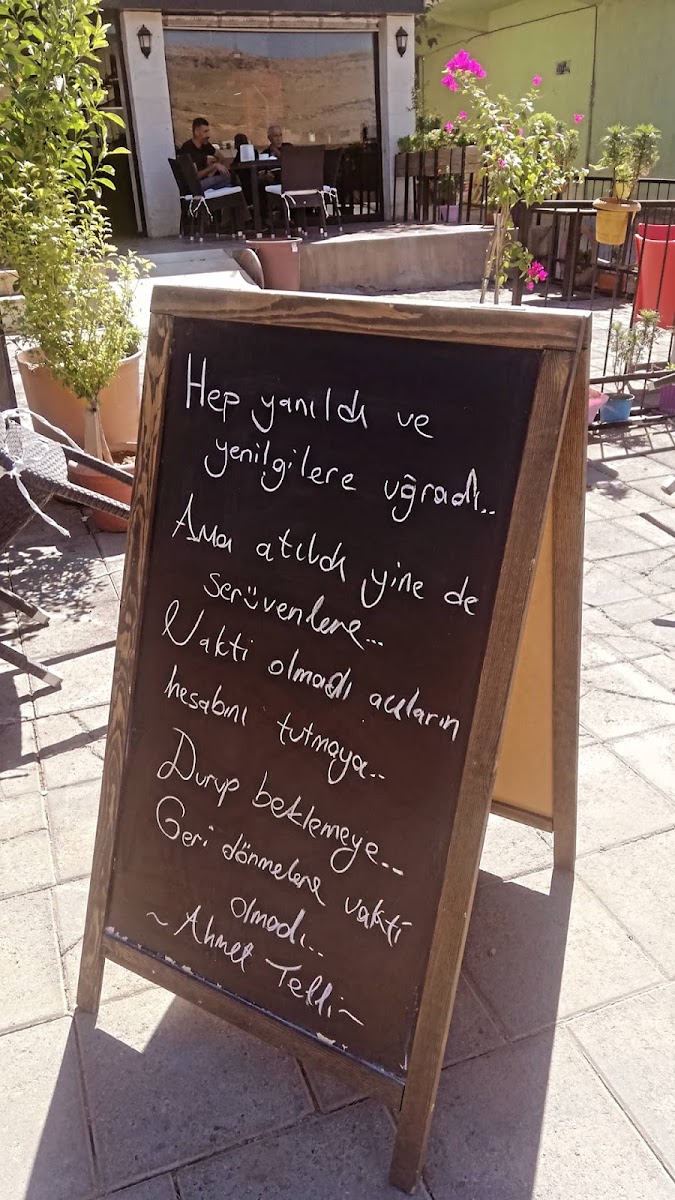 Hep yanıldı ve
yenilgilere uğradı..
Ama atıldı yine de
serüvenlere...
Vakti olmadı acıların
hesabını tutmaya..
Durup beklemeye...
Geri dönmelere vakti
olmadı..
~Ahmet Telli~